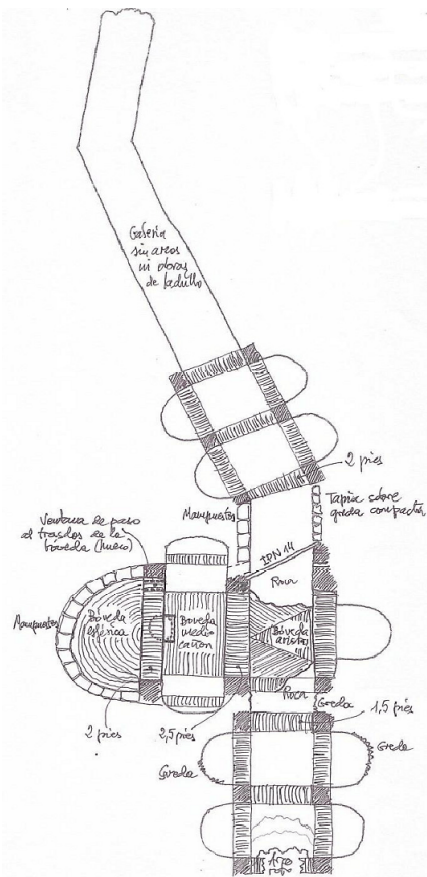 Galería
sin arcos
ni obras
de ladrillo
2 pies
Mampuestos
Tapia sobre
greda compacta
Ventana de paso
al trasdós de la
bóveda (hueco)
IPN 14
Roca
Mampuestos
Bóveda
esférica
Bóveda
medio
cañón
Bóveda
arista
Roca
Greda
2 pies
2,5 pies
1,5 pies
Greda
Greda
1,70